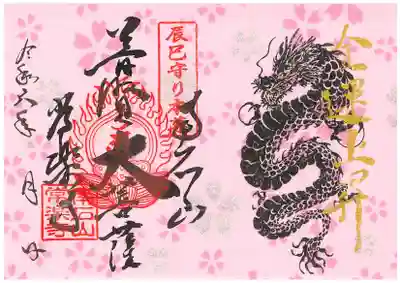 金運上昇
辰巳守り本尊
普賢大菩薩
常楽寺
令和六年 月 日